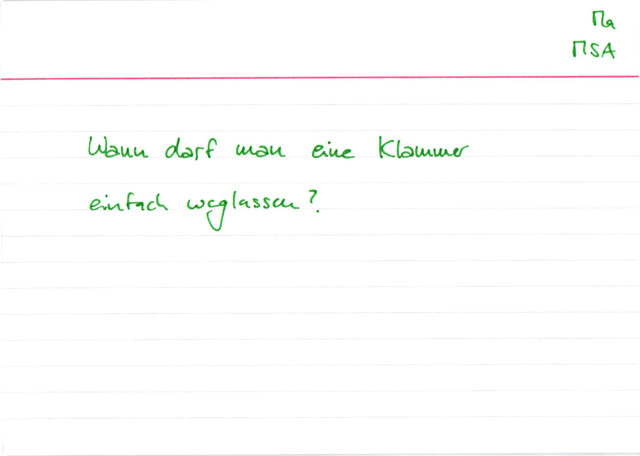 Ma
MSA
Wann darf man eine Klammer
einfach weglassen?